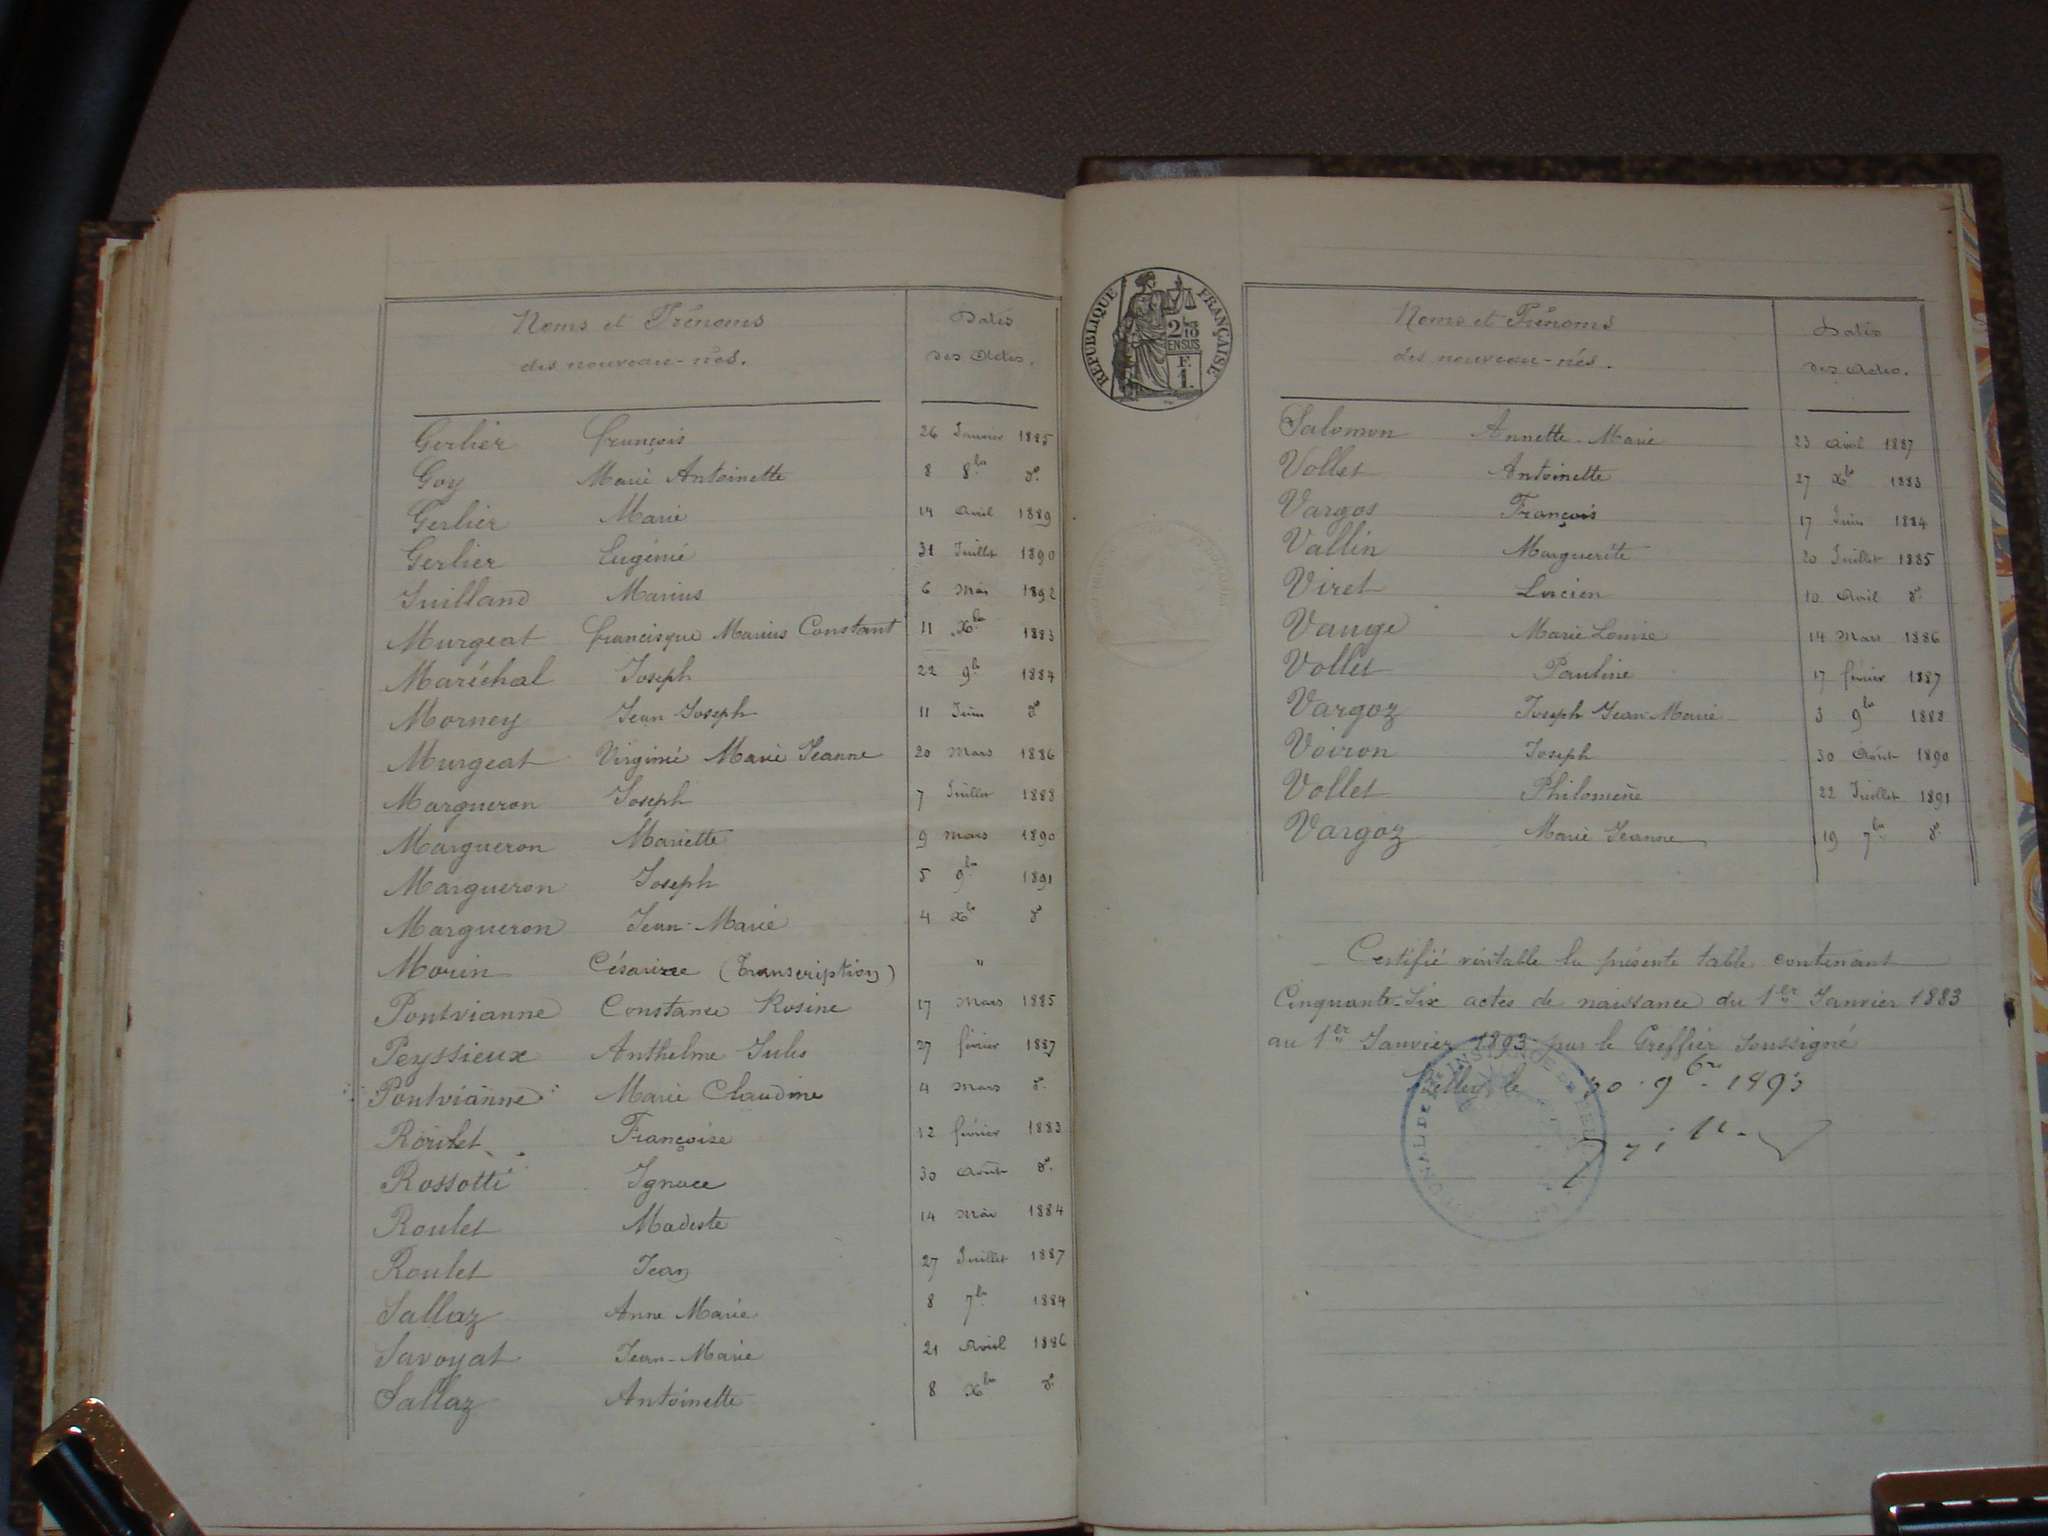 Noms et Prénoms
des nouveau-nés.
Dates
des Actes.
Gerlier François 26 Janvier 1885
Goy Marie Antoinette 8 8bre do
Gerlier Marie 14 Avril 1889
Gerlier Eugénie 31 Juillet 1890
Guilland Marius 6 Mai 1892
Murgeat Francisque Marius Constant 11 Xbre 1883
Maréchal Joseph 22 9bre 1884
Morney Jean Joseph 11 Juin do
Murgeat Virginie Marie Jeanne 20 Mars 1886
Margueron Joseph 7 Juillet 1888
Margueron Mariette 9 Mars 1890
Margueron Joseph 5 9bre 1891
Margueron Jean-Marie 4 Xbre do
Morin Césarine (Transcription) "
Pontvianne Constance Rosine 17 Mars 1885
Peyssieux Anthelme Jules 27 février 1887
Pontvianne Marie Claudine 4 Mars do
Roulet Françoise 12 février 1883
Rossotti Ignace 30 Août do
Roulet Modeste 14 Mai 1884
Roulet Jean 27 Juillet 1887
Sallaz Anne Marie 8 7bre 1884
Savoyat Jean-Marie 21 Avril 1886
Sallaz Antoinette 8 Xbre do
RÉPUBLIQUE FRANÇAISE
2/10 EN SUS
F.
1.
Noms et Prénoms
des nouveau-nés.
Dates
des Actes.
Salomon Annette-Marie 23 Avril 1887
Vollet Antoinette 27 Xbre 1883
Vargos François 17 Juin 1884
Vallin Marguerite 20 Juillet 1885
Viret Lucien 10 Avril do
Vauge Marie Louise 14 Mars 1886
Vollet Pauline 17 février 1887
Vargoz Joseph Jean-Marie 3 9bre 1888
Voiron Joseph 30 Août 1890
Vollet Philomène 22 Juillet 1891
Vargoz Marie Jeanne 19 7bre do
Certifié véritable la présente table contenant
Cinquante-Six actes de naissance du 1er Janvier 1883
au 1er Janvier 1893 par le Greffier Soussigné
Belley le 30 9bre 1893